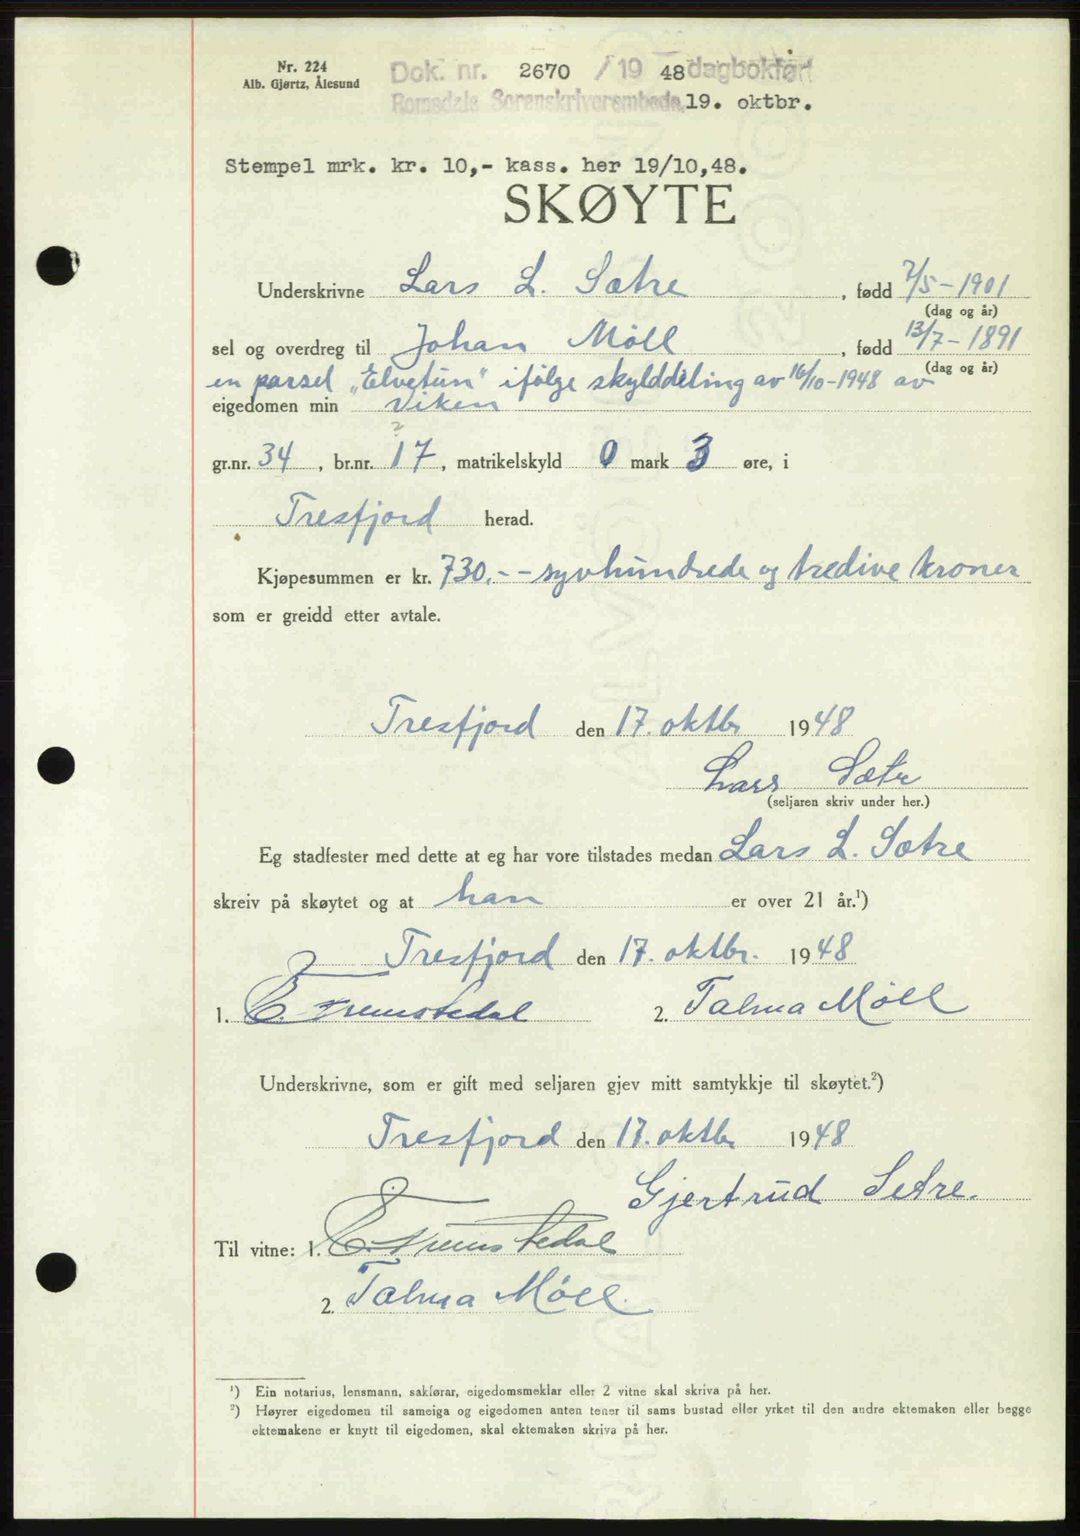 Nr. 224
Alb. Gjørtz, Ålesund
Dok. nr. 2670 /19 48 dagbokført
Romsdals Sorenskriverembede 19. oktbr.
Stempel mrk. kr. 10,- kass. her 19/10,48.
SKØYTE
Underskrivne Lars L. Sætre, fødd 7/5-1901
(dag og år)
sel og overdreg til Johan Möll, fødd 13/7-1891
(dag og år)
en parsel „Elvetun" ifölge skylddeling av 16/10-1948 av
eigedomen min Viken
gr.nr. 34, br.nr. 17, matrikelskyld 0 mark 3 øre, i
Tresfjord herad.
Kjøpesummen er kr. 730.-- syvhundrede og tredive kroner
som er greidd etter avtale.
Tresfjord den 17. oktbr 1948
Lars Sætr
(seljaren skriv under her.)
Eg stadfester med dette at eg har vore tilstades medan Lars L. Sætre
skreiv på skøytet og at han er over 21 år.¹)
Tresfjord den 17. oktbr. 1948
1. E. Fremstedal 2. Talma Möll
Underskrivne, som er gift med seljaren gjev mitt samtykkje til skøytet.²)
Tresfjord den 17. oktbr 1948
Gjertrud Setre.
Til vitne: 1. E. Fremstedal
2. Talma Möll
¹) Ein notarius, lensmann, sakførar, eigedomsmeklar eller 2 vitne skal skriva på her.
²) Høyrer eigedomen til sameiga og eigedomen anten tener til sams bustad eller yrket til den andre ektemaken eller begge
ektemakene er knytt til eigedomen, skal ektemaken skriva på her.